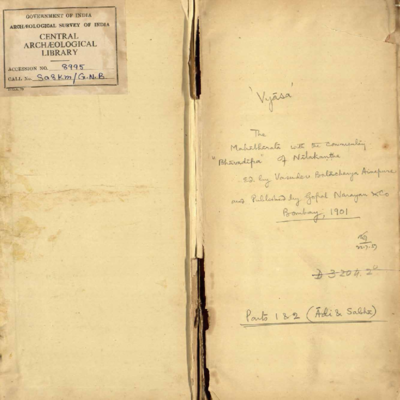 GOVERNMENT OF INDIA
ARCHÆOLOGICAL SURVEY OF INDIA
CENTRAL
ARCHÆOLOGICAL
LIBRARY
ACCESSION NO. 8995
CALL No. Sa8Km/G.N.B.
'Vyāsa'
The
Mahabharata with the commentary
"Bharatadipa" of Nilakantha
ed by Vasudeva Balacharya Ainapure
and Published by Gopal Narayan & Co
Bombay, 1901
Parts 1 & 2 (Ādi & Sabhā)